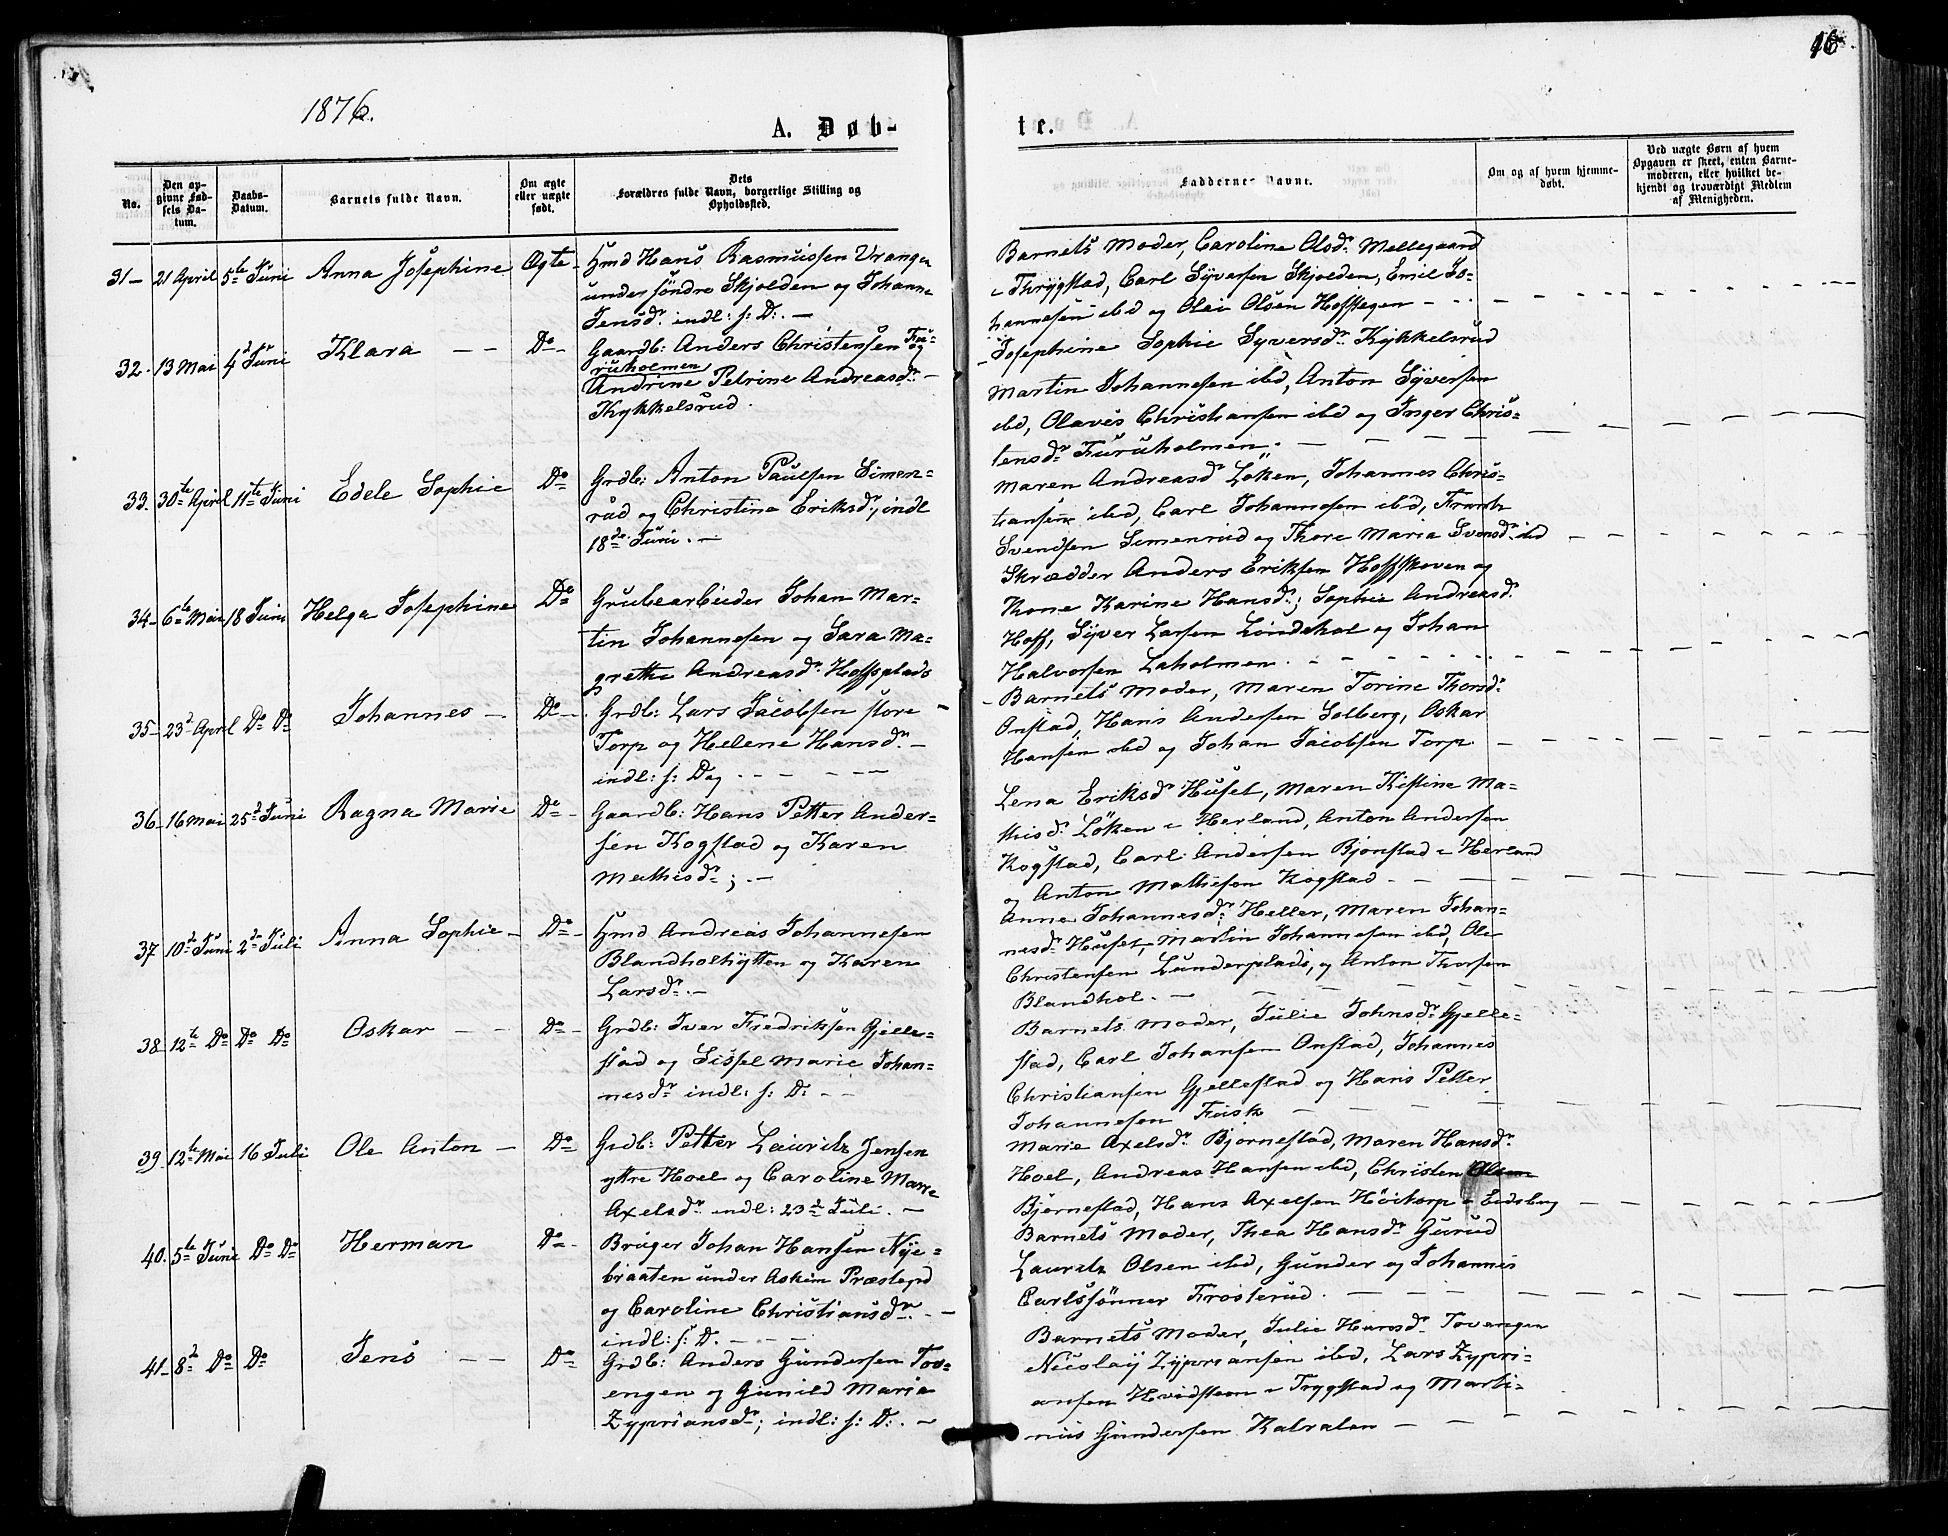 16
1876.
A. Døb-
te.
No.
Den op-
givne Fød-
sels Da-
tum.
Daabs-
Datum.
Barnets fulde Navn.
Om ægte
eller uægte
født.
Dets
Forældres fulde Navn, borgerlige Stilling og
Opholdssted.
Faddernes Navne.
Om og af hvem hjemme-
døbt.
Ved uægte Børn af hvem
Opgaven er skeet, enten Barne-
moderen, eller hvilket be-
kjendt og troværdigt Medlem
af Menigheden.
31 - 21 April 5te Juni Anna Josephine Ægte - Hmd Hans Rasmussen Vrangen
under søndre Skjolden og Johanne
Jensdr. indl: s: D: -
Barnets Moder, Caroline Olsdr. Mellegaard
i Thrygstad, Carl Syversen Skjolden, Emil Jo-
hannesen ibd og Olai Olsen Hoffstegen -
32. 13 Mai 4d Juni Klara - - Do - Gaardb: Anders Christensen Fu-
ruholmen og
Andrine Petrine Andreasdr. -
Kykkelsrud.
Josephine Sophie Syversdr. Kykkelsrud
Martin Johannesen ibd, Anton Syversen
ibd, Olaves Christiansen ibd og Inger Chris-
tensdr. Furuholmen. -
33. 30te April 11te Juni Edele Sophie Do Grdb: Anton Paulsen Simen-
rud og Christine Eriksdr., indl
18de Juni. -
Maren Andreasdr Løken, Johannes Chris-
tiansen ibd, Carl Johannesen ibd, Frants
Svendsen Simenrud og Thore Maria Svensdr. ibd
34 - 6te Mai 18 Juni Helga Josephine Do Grubearbeider Johan Mar-
tin Johannesen og Sara Ma-
grethe Andreasdr. Hoffsplads
Skrædder Anders Eriksen Hoffskoven og
Kone Karine Hansdr; Sophie Andreasdr.
Hoff, Syver Larsen Løndskol og Johan
Halvorsen Laholmen.
35 - 23d April Do Do Johannes - Do - Grdb: Lars Jacobsen store -
Torp og Helene Hansdr. -
indl: s: Dag - - -
Barnets Moder, Maren Torine Thorsdr.
Onstad, Hans Andersen Solberg, Oskar
Hansen ibd og Johan Jacobsen Torp -
36 - 16 Mai 25d Juni Ragna Marie Do - Gaardb: Hans Petter Ander-
sen Kogstad og Karen
Mathisdr; -
Lena Eriksdr Huset, Maren Kistine Ma-
thisdr. Løken i Herland, Anton Andersen
Kogstad, Carl Andersen Bjonstad i Herland
og Anton Mathiesen Kogstad -
37 10de Juni 2den Juli Anna Sophie - Do - Hmd Andreas Johannesen
Blandholhytten og Karen
Larsdr. -
Anne Johannesdr. Heller, Maren Johan-
nesdr. Huset, Martin Johannesen ibd, Ole
Christensen Lundersplads, og Anton Thorsen
Blandhol. -
38 12te Do Do Do Oskar - - Do - Grdb: Iver Fredriksen Gjelle-
stad og Sissel Marie Johan-
nesdr indl: s: D: - -
Barnets Moder, Julie Johnsdr. Gjelle-
stad, Carl Johansen Onstad, Johannes
Christiansen Gjellestad og Hans Petter
Johannesen Frisk -
39 12te Mai 16 Juli Ole Anton - Do Grdb: Petter Lauritz Jensen
yttre Hoel og Caroline Marie
Axelsdr. indl: 23d Juli. -
Marie Axelsdr. Bjørnestad, Maren Hansdr.
Hoel, Andreas Hansen ibd, Christen Olsen
Bjørnestad, Hans Axelsen Høitorp i Eidsberg
40. 5te Juni Do Do Herman Do - Bruger Johan Hansen Nye-
braaten under Askim Præstegd
og Caroline Christiansdr. -
indl: s: D. - - -
Barnets Moder, Thea Hansdr Gurud
Lauritz Olsen ibd, Gunder og Johannes
Carlssønner Frosterud. -
41 - 8d Do Do Jens - - Do Grdb: Anders Gundersen Tov-
engen og Gunild Maria
Zypriansdr; indl: s: D: -
Barnets Moder, Julie Hansdr. Tovengen
Nicolay Zypriansen ibd, Lars Zypri-
ansen Hvidsteen i Trygstad og Marti-
nius Gundersen Kalralen -